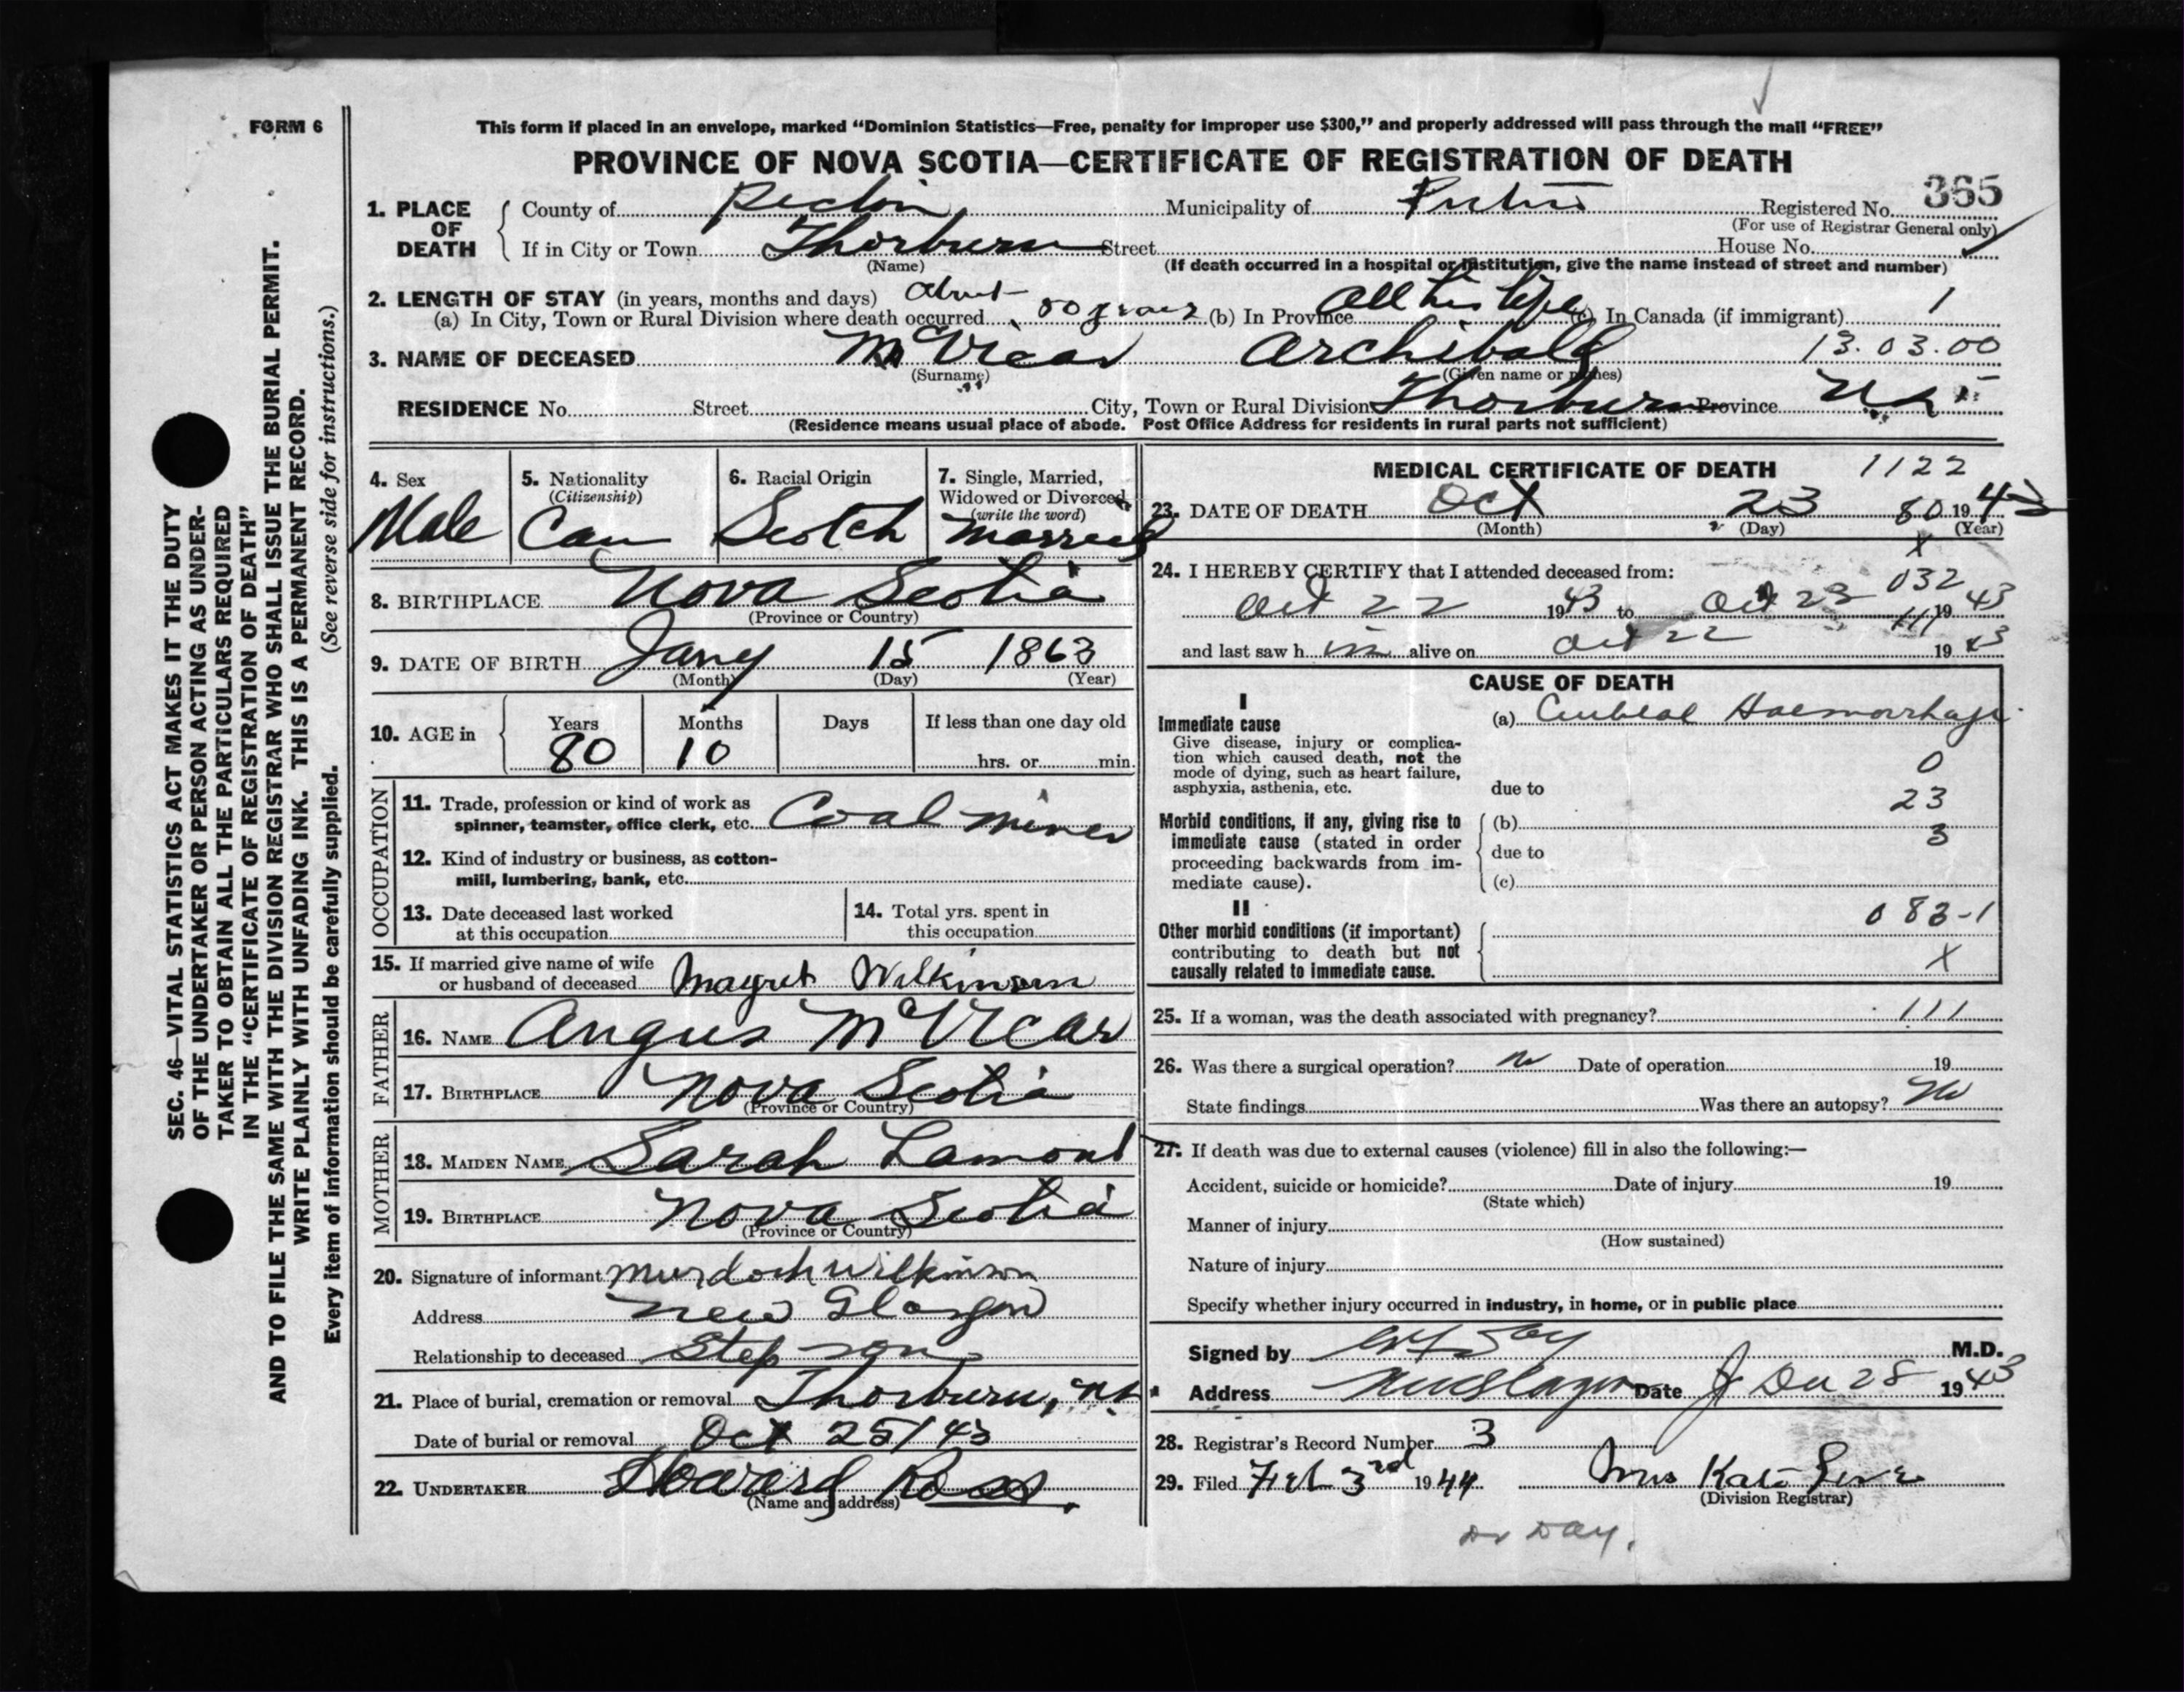 FORM 6
This form if placed in an envelope, marked “Dominion Statistics—Free, penalty for improper use $300,” and properly addressed will pass through the mail “FREE”
PROVINCE OF NOVA SCOTIA—CERTIFICATE OF REGISTRATION OF DEATH
365
1. PLACE OF DEATH
County of Pictou Municipality of Pictou Registered No.
(For use of Registrar General only)
If in City or Town Thorburn Street House No.
(Name) (If death occurred in a hospital or institution, give the name instead of street and number)
2. LENGTH OF STAY (in years, months and days) about
(a) In City, Town or Rural Division where death occurred years (b) In Province All his life (c) In Canada (if immigrant) 1
3. NAME OF DECEASED McVicar Archibald 13.03.00
(Surname) (Given name or names)
RESIDENCE No. Street City, Town or Rural Division Thorburn Province N.S.
(Residence means usual place of abode. Post Office Address for residents in rural parts not sufficient)
4. Sex
Male
5. Nationality
(Citizenship)
Can
6. Racial Origin
Scotch
7. Single, Married,
Widowed or Divorced
(write the word)
Married
8. BIRTHPLACE Nova Scotia
(Province or Country)
9. DATE OF BIRTH Jany 15 1863
(Month) (Day) (Year)
10. AGE in Years Months Days If less than one day old
80 10 hrs. or min.
OCCUPATION
11. Trade, profession or kind of work as
spinner, teamster, office clerk, etc. Coal miner
12. Kind of industry or business, as cotton-
mill, lumbering, bank, etc.
13. Date deceased last worked
at this occupation
14. Total yrs. spent in
this occupation
15. If married give name of wife
or husband of deceased Magret Wilkinson
FATHER
16. NAME Angus McVicar
17. BIRTHPLACE Nova Scotia
(Province or Country)
MOTHER
18. MAIDEN NAME Sarah Lamont
19. BIRTHPLACE Nova Scotia
(Province or Country)
20. Signature of informant Murdoch Wilkinson
Address New Glasgow
Relationship to deceased Step son
21. Place of burial, cremation or removal Thorburn, N.S.
Date of burial or removal Oct 25/43
22. UNDERTAKER Howard Ross
(Name and address)
MEDICAL CERTIFICATE OF DEATH 1122
23. DATE OF DEATH Oct 23 80 1943
(Month) (Day) (Year)
X
24. I HEREBY CERTIFY that I attended deceased from:
032
Oct 22 1943 to Oct 23 1943
111
and last saw him alive on Oct 22 1943
CAUSE OF DEATH
I
Immediate cause
Give disease, injury or complica-
tion which caused death, not the
mode of dying, such as heart failure,
asphyxia, asthenia, etc.
(a) Cerebral Haemorrhage
0
due to
23
Morbid conditions, if any, giving rise to
immediate cause (stated in order
proceeding backwards from im-
mediate cause).
(b)
3
due to
(c)
II
Other morbid conditions (if important)
contributing to death but not
causally related to immediate cause.
083-1
X
25. If a woman, was the death associated with pregnancy? 111
26. Was there a surgical operation? no Date of operation 19
State findings Was there an autopsy? No
27. If death was due to external causes (violence) fill in also the following:—
Accident, suicide or homicide? Date of injury 19
(State which)
Manner of injury
(How sustained)
Nature of injury
Specify whether injury occurred in industry, in home, or in public place
Signed by Day M.D.
Address New Glasgow Date Dec 28 1943
28. Registrar's Record Number 3
29. Filed Feb 3rd 1944 Mrs Kate
(Division Registrar)
Dr Day.
SEC. 46—VITAL STATISTICS ACT MAKES IT THE DUTY
OF THE UNDERTAKER OR PERSON ACTING AS UNDER-
TAKER TO OBTAIN ALL THE PARTICULARS REQUIRED
IN THE “CERTIFICATE OF REGISTRATION OF DEATH”
AND TO FILE THE SAME WITH THE DIVISION REGISTRAR WHO SHALL ISSUE THE BURIAL PERMIT.
WRITE PLAINLY WITH UNFADING INK. THIS IS A PERMANENT RECORD.
Every item of information should be carefully supplied. (See reverse side for instructions.)